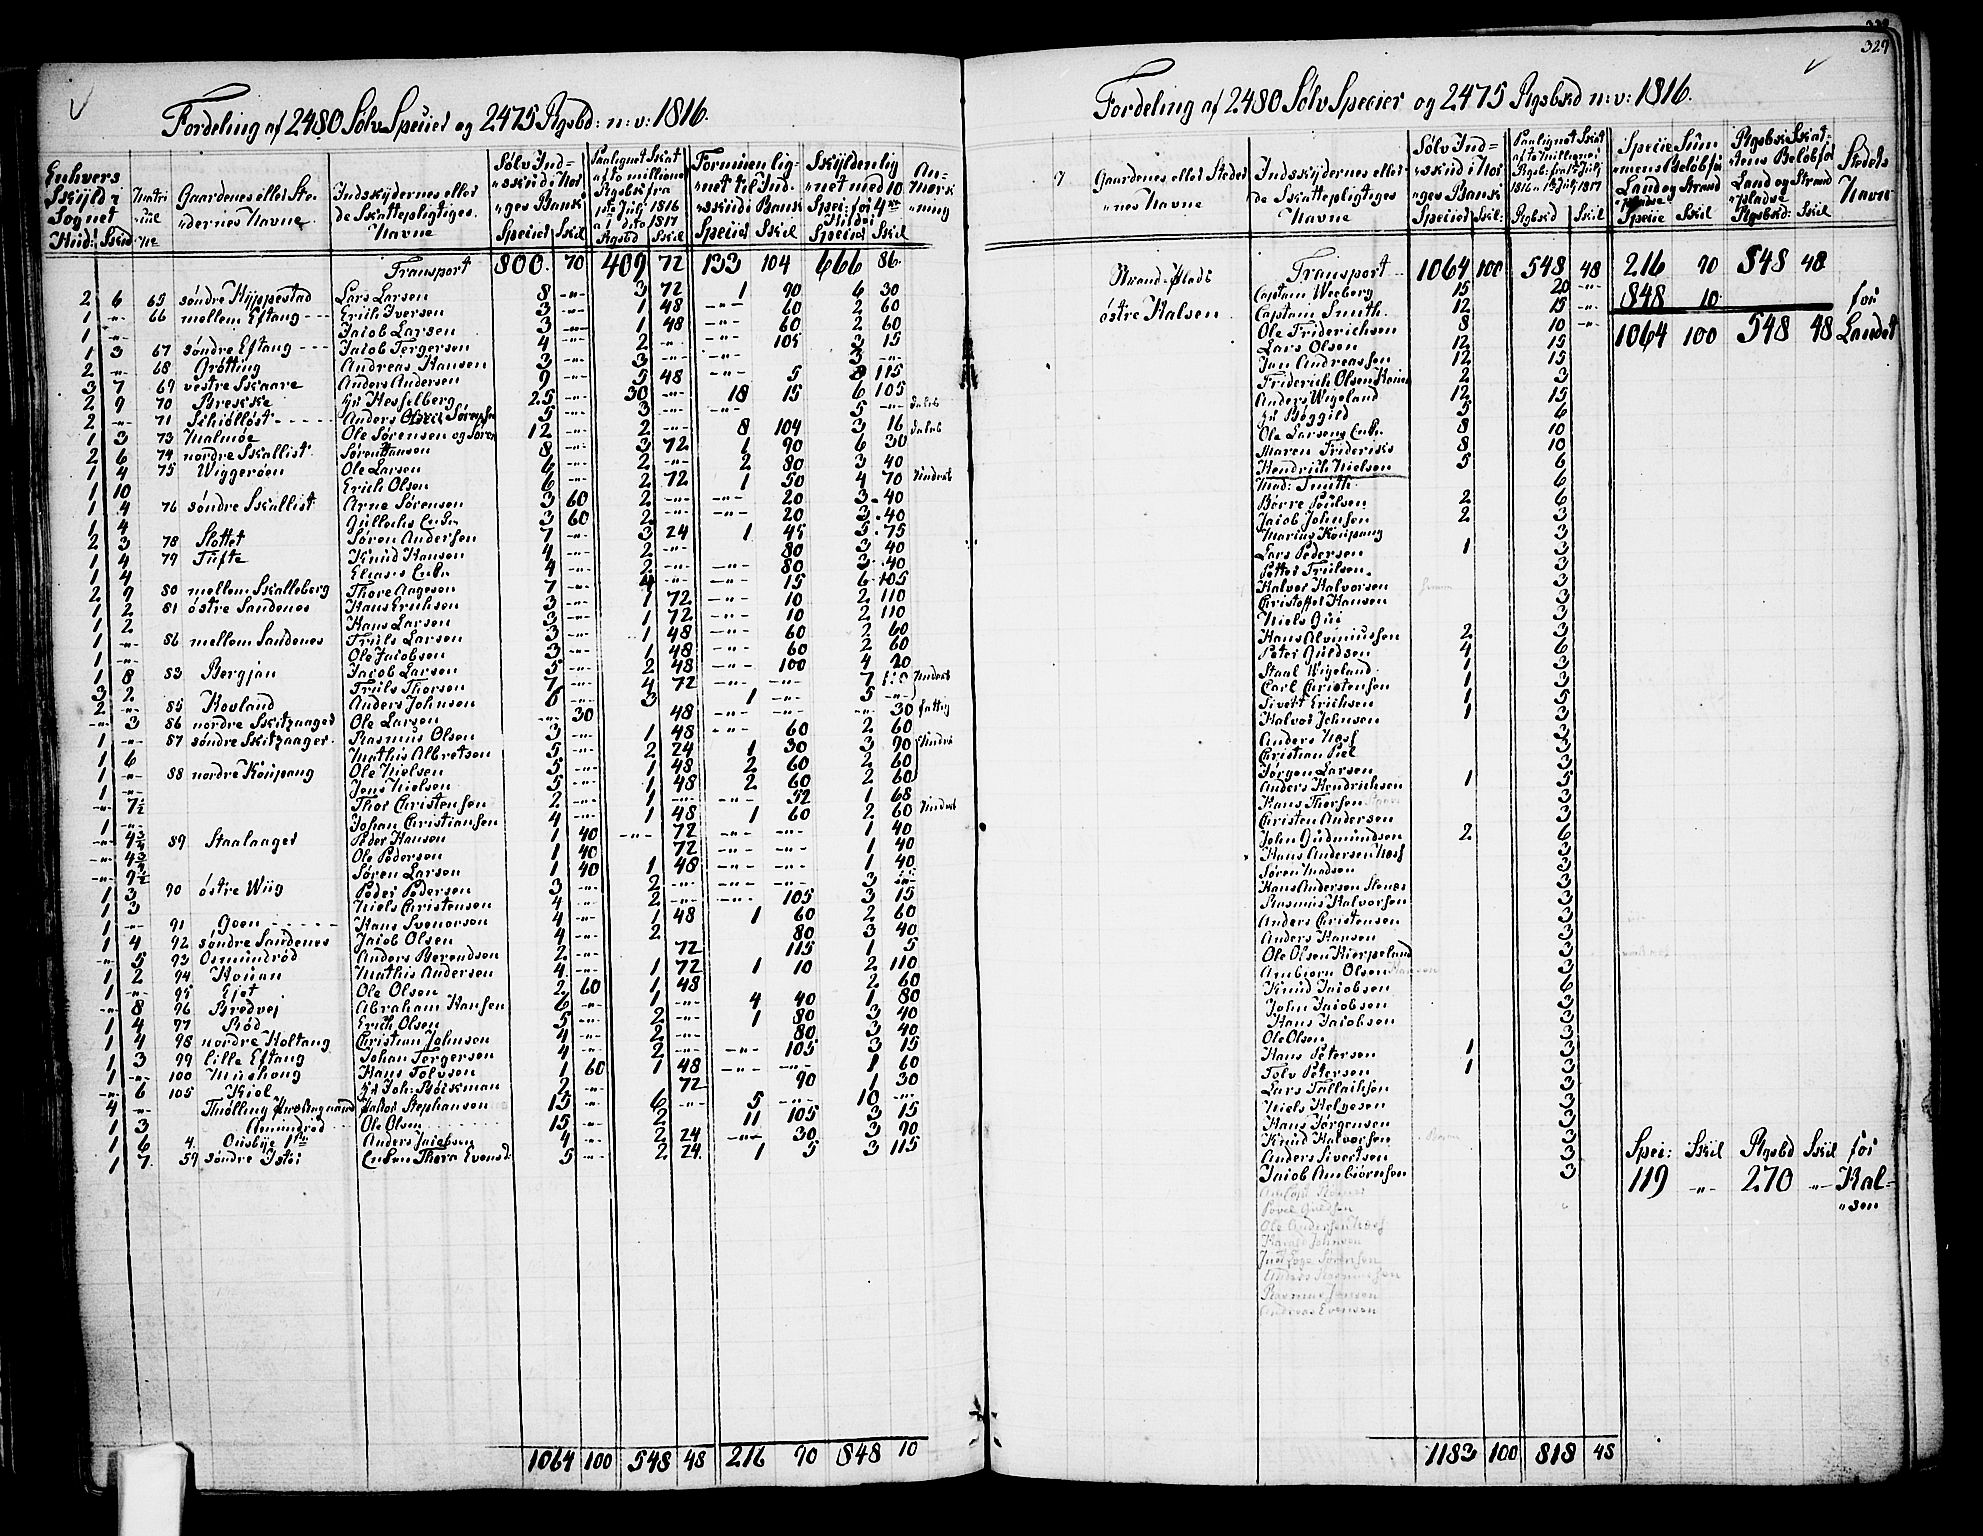 329
Fordeling af 2480 Sølv Specier og 2475 Rgsbd: n: v: 1816.
Enhvers Skyld i Sognet Hud: Skind
Matricule No
Gaardenes eller Stedernes Navne
Indskydernes eller de Skattepligtiges Navne
Sølv Indskud i Norges Bank Specier Skil
Paalignet Skat af to millioner Rgsbd fra 1ste July 1816 a 1 dito 1817 Rgsbd Skil
Formuen lignet til Indskud i Bank Specier Skil
Skylden lignet med 10 Spec: for Specier Skil
Anmærkning
Transport 800. 70 409 72 133 104 666 86.
2 6 65 søndre Hyppestad Lars Larsen 8 -"- 3 72 1 90 6 30
1 -"- 66 mellem Eftang Erich Iversen 3 -"- 1 48 -"- 60 2 60
1 -"- Jacob Larsen 3 -"- 1 48 -"- 60 2 60
1 3 67 søndre Eftang Jacob Tergersen 4 -"- 2 -"- 105 3 15
2 -"- 68 Grøtting Andreas Hansen 3 -"- 3 -"- 3 -"-
3 7 69 vestre Skaare Anders Andersen 9 -"- 5 48 -"- 5 8 115
2 9 70 Breskke Hesselberg 25 -"- 30 -"- 18 15 6 105
2 -"- 71 Schiølløst Anders Sørensen 5 -"- 3 -"- 5 -"-
1 3 73 Malmøe Ole Sørensen og Søren 12 -"- 2 -"- 8 104 3 16
2 6 74 nordre Skallist Søren Hansen 8 -"- 3 72 1 90 6 30
1 4 75 Wiggerøen Ole Larsen 6 -"- 2 -"- 2 80 3 40
1 10 Erich Olsen 6 -"- 2 72 1 50 4 70
1 4 76 søndre Skallist Arne Sørensen 3 60 2 -"- -"- 20 3 40
1 4 Gullachs Enke 3 60 2 -"- -"- 20 3 40
2 3 78 Slottet Søren Andersen 7 -"- 3 24 1 45 5 75
1 4 79 Tufte Knud Hansen 4 -"- 2 -"- 80 3 40
1 4 Eliases Enke 4 -"- 2 -"- -"- 80 3 40
2 9 80 mellem Skalleberg Thore Aagesen 7 -"- 4 -"- -"- 15 6 105
1 2 81 østre Sandenes Hans Erichsen 3 -"- 1 72 -"- 10 2 110
1 2 Hans Larsen 3 -"- 1 72 -"- 10 2 110
1 -"- 86 mellem Sandenes Truls Larsen 3 -"- 1 48 -"- 60 2 60
1 -"- Ole Jacobsen 3 -"- 1 48 -"- 60 2 60
1 8 83 Bergjan Jacob Larsen 5 -"- 2 48 -"- 100 4 20
3 2 Truls Thorsen 7 -"- 4 72 -"- -"- 7
2 -"- 85 Rovland Anders Johnsen 6 -"- 3 1 -"- 5 -"-
-"- 3 86 nordre Skitzaager Ole Larsen -"- 30 48 -"- -"- -"- 30 fattig
1 -"- 87 søndre Skitzaager Rasmus Olsen 3 -"- 1 48 -"- 60 2 60
1 6 Mathis Albretsen 5 -"- 2 24 1 30 3 90
1 -"- 88 nordre Koupang Ole Nielsen 5 -"- 1 48 2 60 2 60
1 -"- Jens Nielsen 5 -"- 1 48 2 60 2 60
-"- 7½ Thor Christensen 2 -"- 1 -"- -"- 52 1 68
1 -"- Johan Christiansen 4 -"- 1 48 1 60 2 60
-"- 4¾ 89 Staalaager Peder Hansen 1 40 -"- 72 -"- -"- 1 40
-"- 4¾ Ole Pedersen 1 40 72 -"- -"- 1 40
-"- 9½ Søren Larsen 1 40 1 48 -"- -"- 1 40
1 3 90 østre Wiig Peder Pedersen 3 -"- 2 -"- -"- -"- 3
1 3 Niels Christensen 4 -"- 2 -"- -"- 105 3 15
1 -"- 91 Goen Hans Svenorsen 4 -"- 1 48 1 60 2 60
1 4 92 søndre Sandenes Jacob Olsen 4 -"- 2 80 3 40
-"- 5 93 Osmundrød Anders Berendsen 2 -"- 72 115 1 5
1 2 94 Kouan Mathis Andersen 4 -"- 1 72 1 10 2 110
1 -"- 95 Gjet Ole Olsen 2 60 1 48 2 60
-"- 8 96 Bredvej Abraham Hansen 6 -"- 1 -"- 4 40 1 80
1 4 97 Rød Erich Olsen 5 -"- 2 -"- 1 80 3 40
1 4 98 nordre Holtang Christian Johnsen 4 -"- 2 -"- 80 3 40
1 3 99 lille Eftang Johan Tergersen 4 -"- 2 -"- -"- 105 3 15
1 -"- 100 Muehoug Hans Tolvsen 1 60 1 48 -"- -"- 1 60
-"- 6 105 Kiel Joh: Bøckman 2 -"- 72 90 1 30
4 -"- Thølling Jacob Stephansen 15 -"- 6 -"- 5 -"- 10 -"-
1 3 Amundrød Ole Olsen 15 -"- 2 11 105 3 15
1 6 4. Ousbye Anders Jacobsen 4 -"- 2 24 -"- 30 3 90
1 7. 59 søndre Istøe Enken Thora Evensd 5 -"- 2 24. 1 5 3 115
1064 100 548 48 216 90 848 10
Fordeling af 2480 Sølv Specier og 2475 Rgsbkd n: v: 1816.
Gaardenes eller Stedernes Navne
Indskydernes eller de Skattepligtiges Navne
Sølv Indskud i Norges Bank Specier Skil:
Paalignet Skat af to millioner Rgsb: fra 1ste July 1816 - 1ste July 1817 Rgsbkd Skil
Specie Summens Beløb for Land og Strand Pladse Specie Skil
Rgsbks Skattens Beløb for Land og Strand Pladse Rgsbkd: Skil
Stedets Navn
Strand-Plads Transport 1064 100 548 48 216 90 548 48
Captain Weeberg 15 20 -"- 848 10 for
østre Halsen Captain Smith 12 15 -"-
Ole Friderichsen 8 10 -"- 1064 100 548 48 Landet
Lars Olsen 12 15
Jan Andreassen 12 15
Friderich Olsen 2 3
Anders Wigeland 12 15
Bøggild 5 6
Ole Larsens Enke 8 10
Maren Frideriks 8 10
Hendrich Nielsen 5 6
Mad: Smith 6
Børre Poulsen 2 6
Jacob Johnsen 2 3
Marius Koupang 3
Lars Pedersen 1 3
Petter Trulsen 3
Halvor Halvorsen 3
Christoffer Hansen 3
Niels Gui 3
Hans Alviniussen 2 3
Peter Guldsen 4 6
Staal Wigeland 1 3
Carl Christensen 1 3
Sivert Erichsen 1 5
Halvor Johnsen 1 3
Anders Næss 3
Christian Piel 2
Jørgen Larsen 3
Anders Hendrichsen 1 5
Hans Thorsen 3
Christen Andersen 3
John Gudmundsen 2 6
Hans Andersen Næss 3
Søren Madsen 3
Hans Andersen Stenes 3
Rasmus Halvorsen 3
Anders Christensen 3
Anders Hansen 3
Ole Olsen Kierpeland 3
Ambiørn Olsen 3
Knud Jacobsen 6
John Jacobsen 3
Hans Jacobsen 3
Ole Olsen 3
Hans Petersen 1 3
Tolv Petersen 1 3
Lars Tallachsen 3
Niels Helgesen 3
Hans Jørgensen 3
Knud Halvorsen 3
Anders Sivertsen 3
Jacob Ambiørnsen 3
Spec: Skil Rgsbd Skil for
119 -"- 270 -"- Halsen
Povel Guldsen
Ole Andersen Næss
Harald Johnsen
Sørensen
Anders Rasmussen
Rasmus Jansen
Andreas Evensen
1183 100 818 48